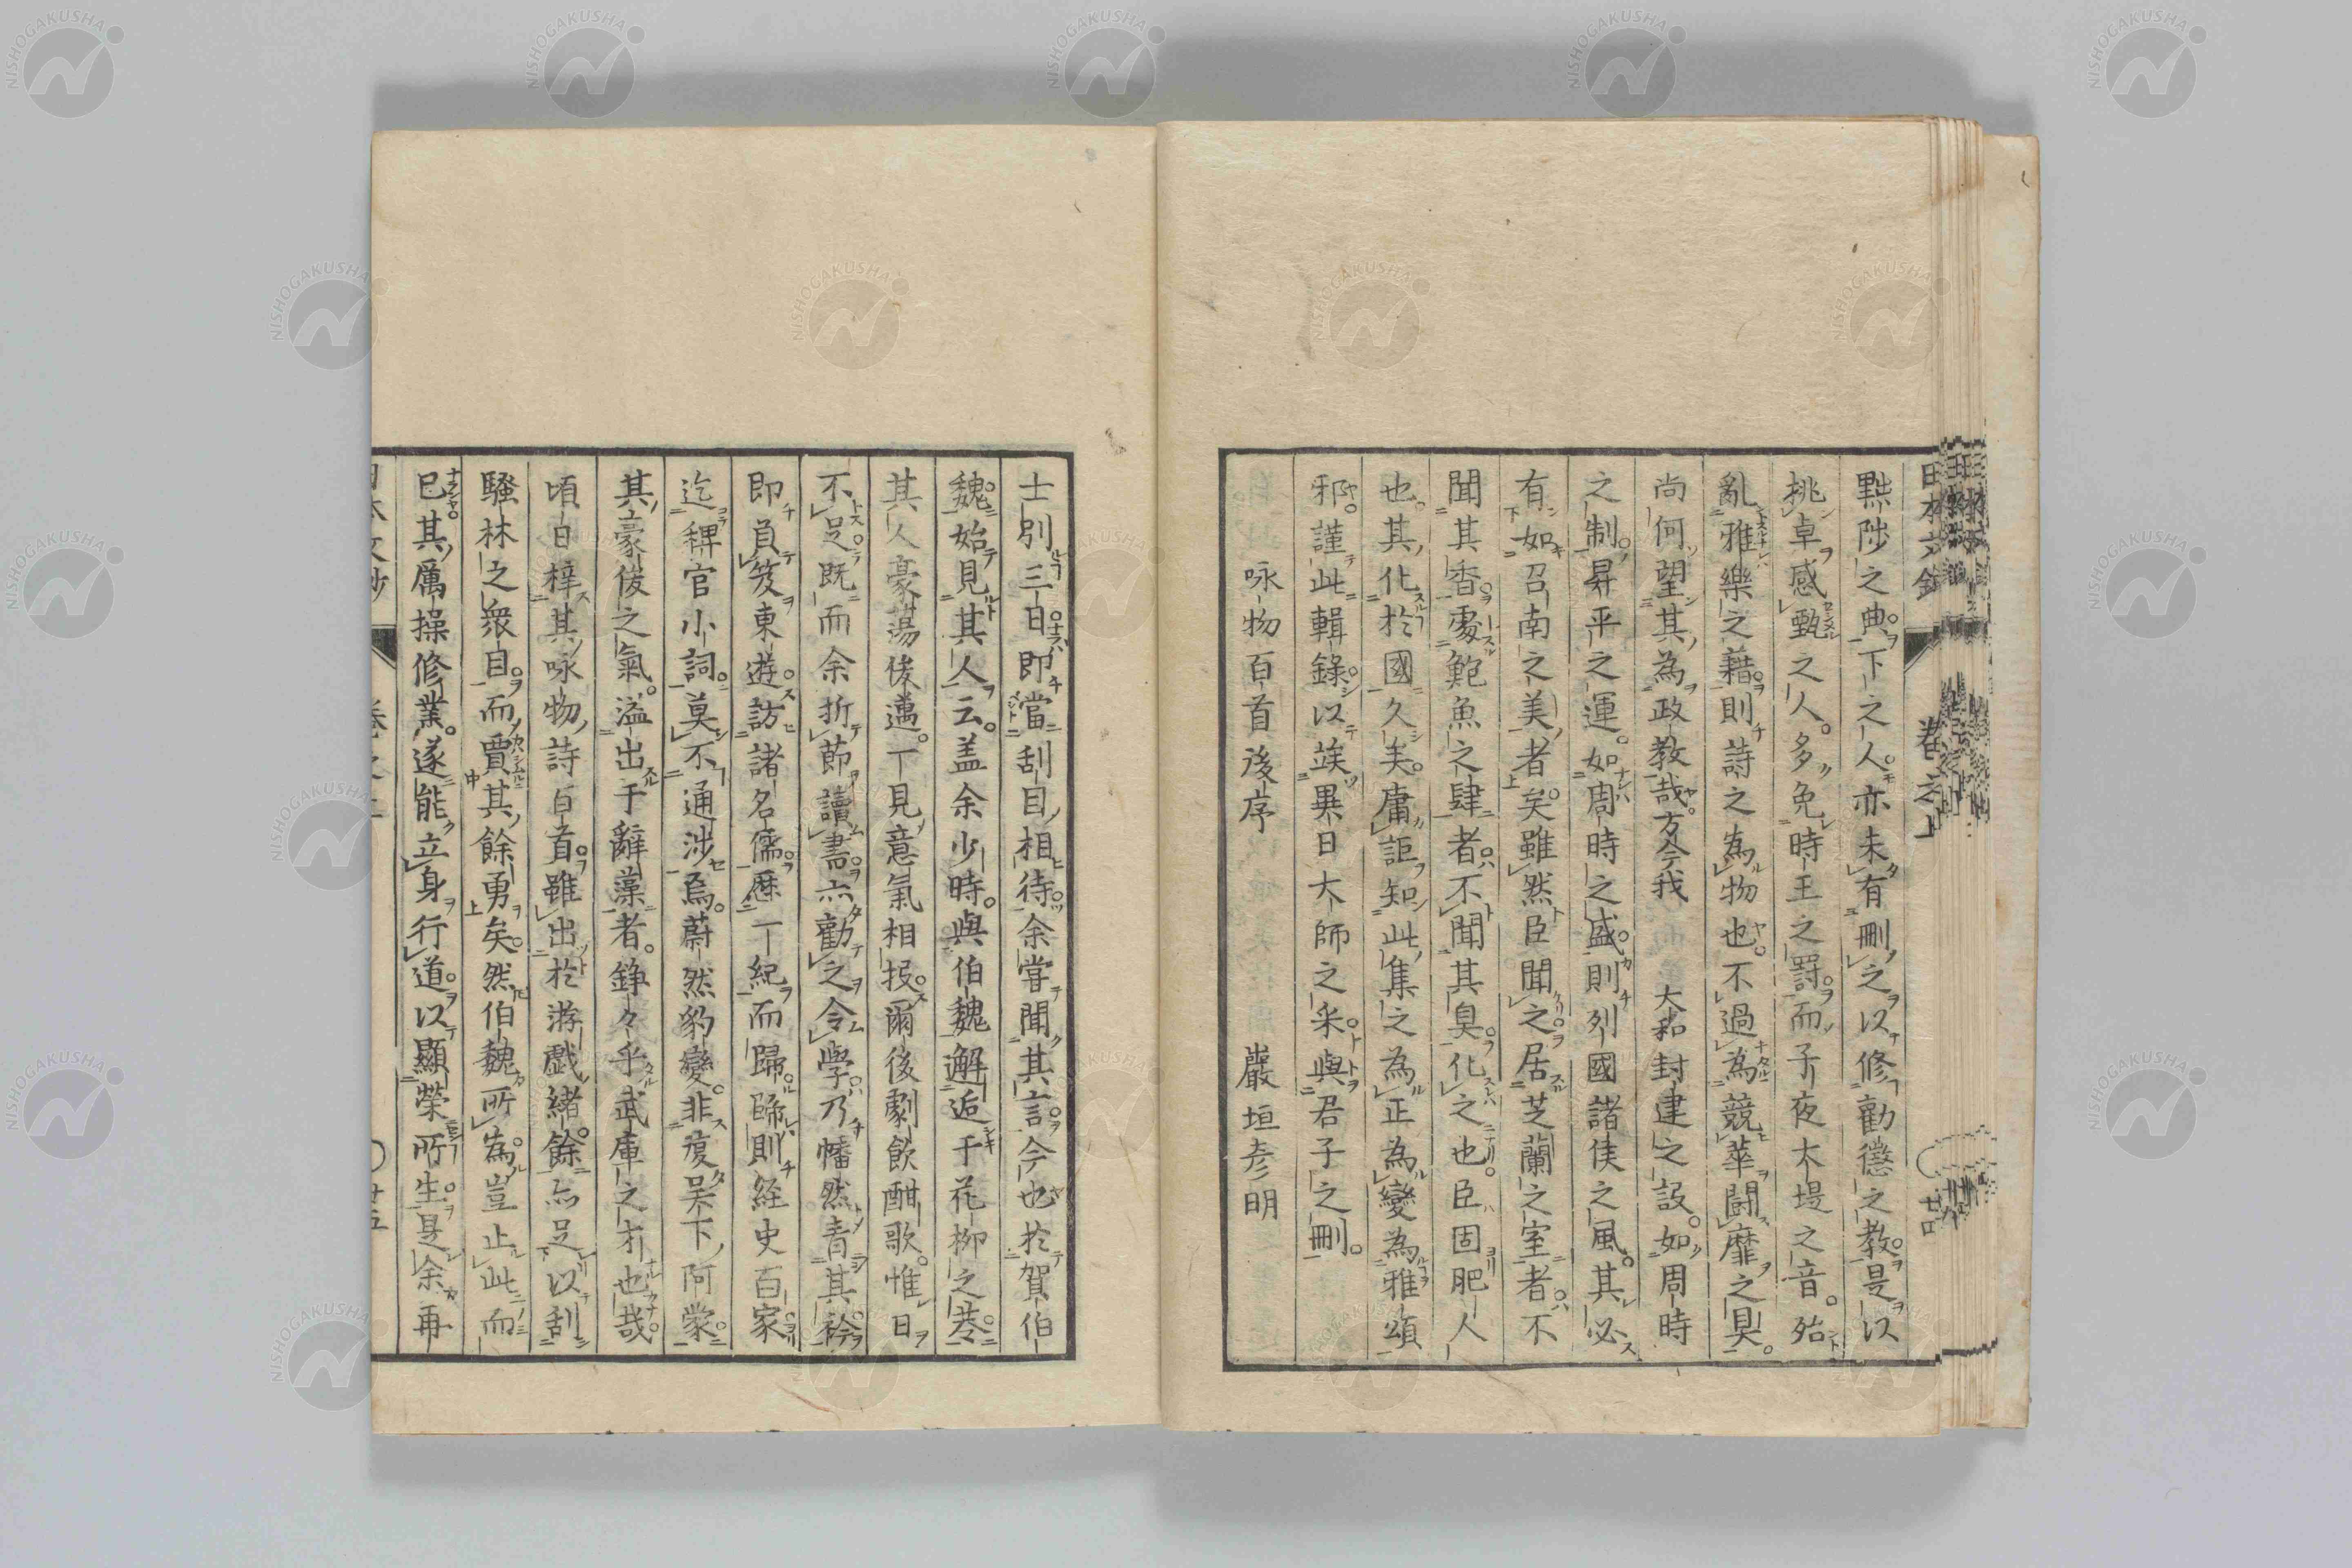 黜陟之典下之人亦未有刪之以修勸懲之教是以
挑卓感甄之人多免時王之罸而子夜大堤之音殆
亂雅樂之藉則詩之為物也不過為競華鬪靡之具
尚何望其為政教哉方今我 大和封建之設如周時
之制昇平之運如周時之盛則列國諸侯之風其必
有如召南之美者矣雖然臣聞之居芝蘭之室者不
聞其香處鮑魚之肆者不聞其臭化之也臣固肥人
也其化於國久矣庸詎知此集之為正為變為雅頌
邪謹此輯錄以竢異日大師之采與君子之刪
咏物百首後序 巖垣彦明
日本文鈔 卷之上 廿四
士別三日即當刮目相待余甞聞其言今也於賀伯
魏始見其人云盖余少時與伯魏邂逅于花柳之巷
其人豪蕩俊邁一見意氣相投爾後劇飲酣歌惟日
不足既而余折節讀書亦勸之令學乃幡然青其衿
即負笈東遊訪諸名儒歴一紀而歸歸則経史百家
迄稗官小詞莫不通涉焉蔚然豹變非復呉下阿蒙
其豪俊之氣溢出于辭藻者錚々乎武庫之才也哉
頃日梓其咏物詩百首雖出於游戯緒餘亦足以刮
騷林之衆目而賈其餘勇矣然伯魏所為豈止此而
已其厲操修業遂能立身行道以顯榮所生是余再
日本文鈔 卷之上 廿五